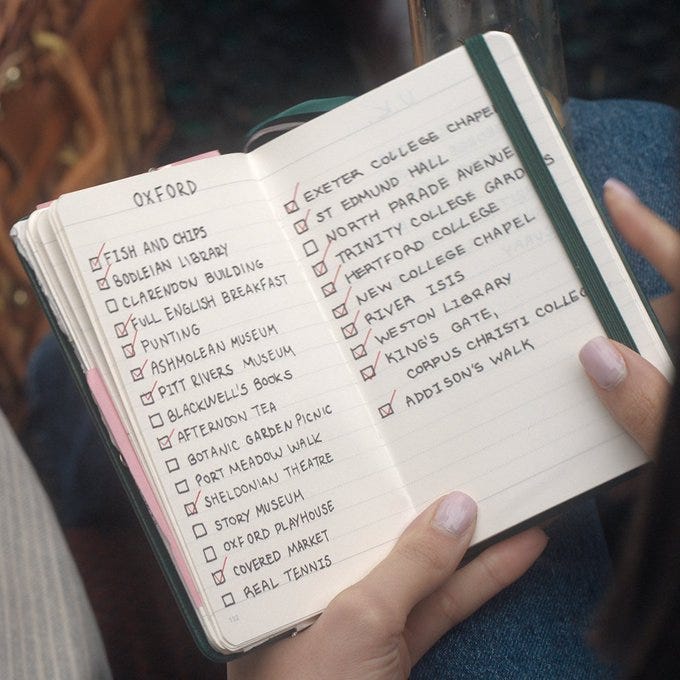 OXFORD
FISH AND CHIPS
BODLEIAN LIBRARY
CLARENDON BUILDING
FULL ENGLISH BREAKFAST
PUNTING
ASHMOLEAN MUSEUM
PITT RIVERS MUSEUM
BLACKWELL'S BOOKS
AFTERNOON TEA
BOTANIC GARDEN PICNIC
PORT MEADOW WALK
SHELDONIAN THEATRE
STORY MUSEUM
OXFORD PLAYHOUSE
COVERED MARKET
REAL TENNIS
132
EXETER COLLEGE CHAPEL
ST EDMUND HALL
NORTH PARADE AVENUE
TRINITY COLLEGE GARDENS
HERTFORD COLLEGE
NEW COLLEGE CHAPEL
RIVER ISIS
WESTON LIBRARY
KING'S GATE,
CORPUS CHRISTI COLLEG
ADDISON'S WALK